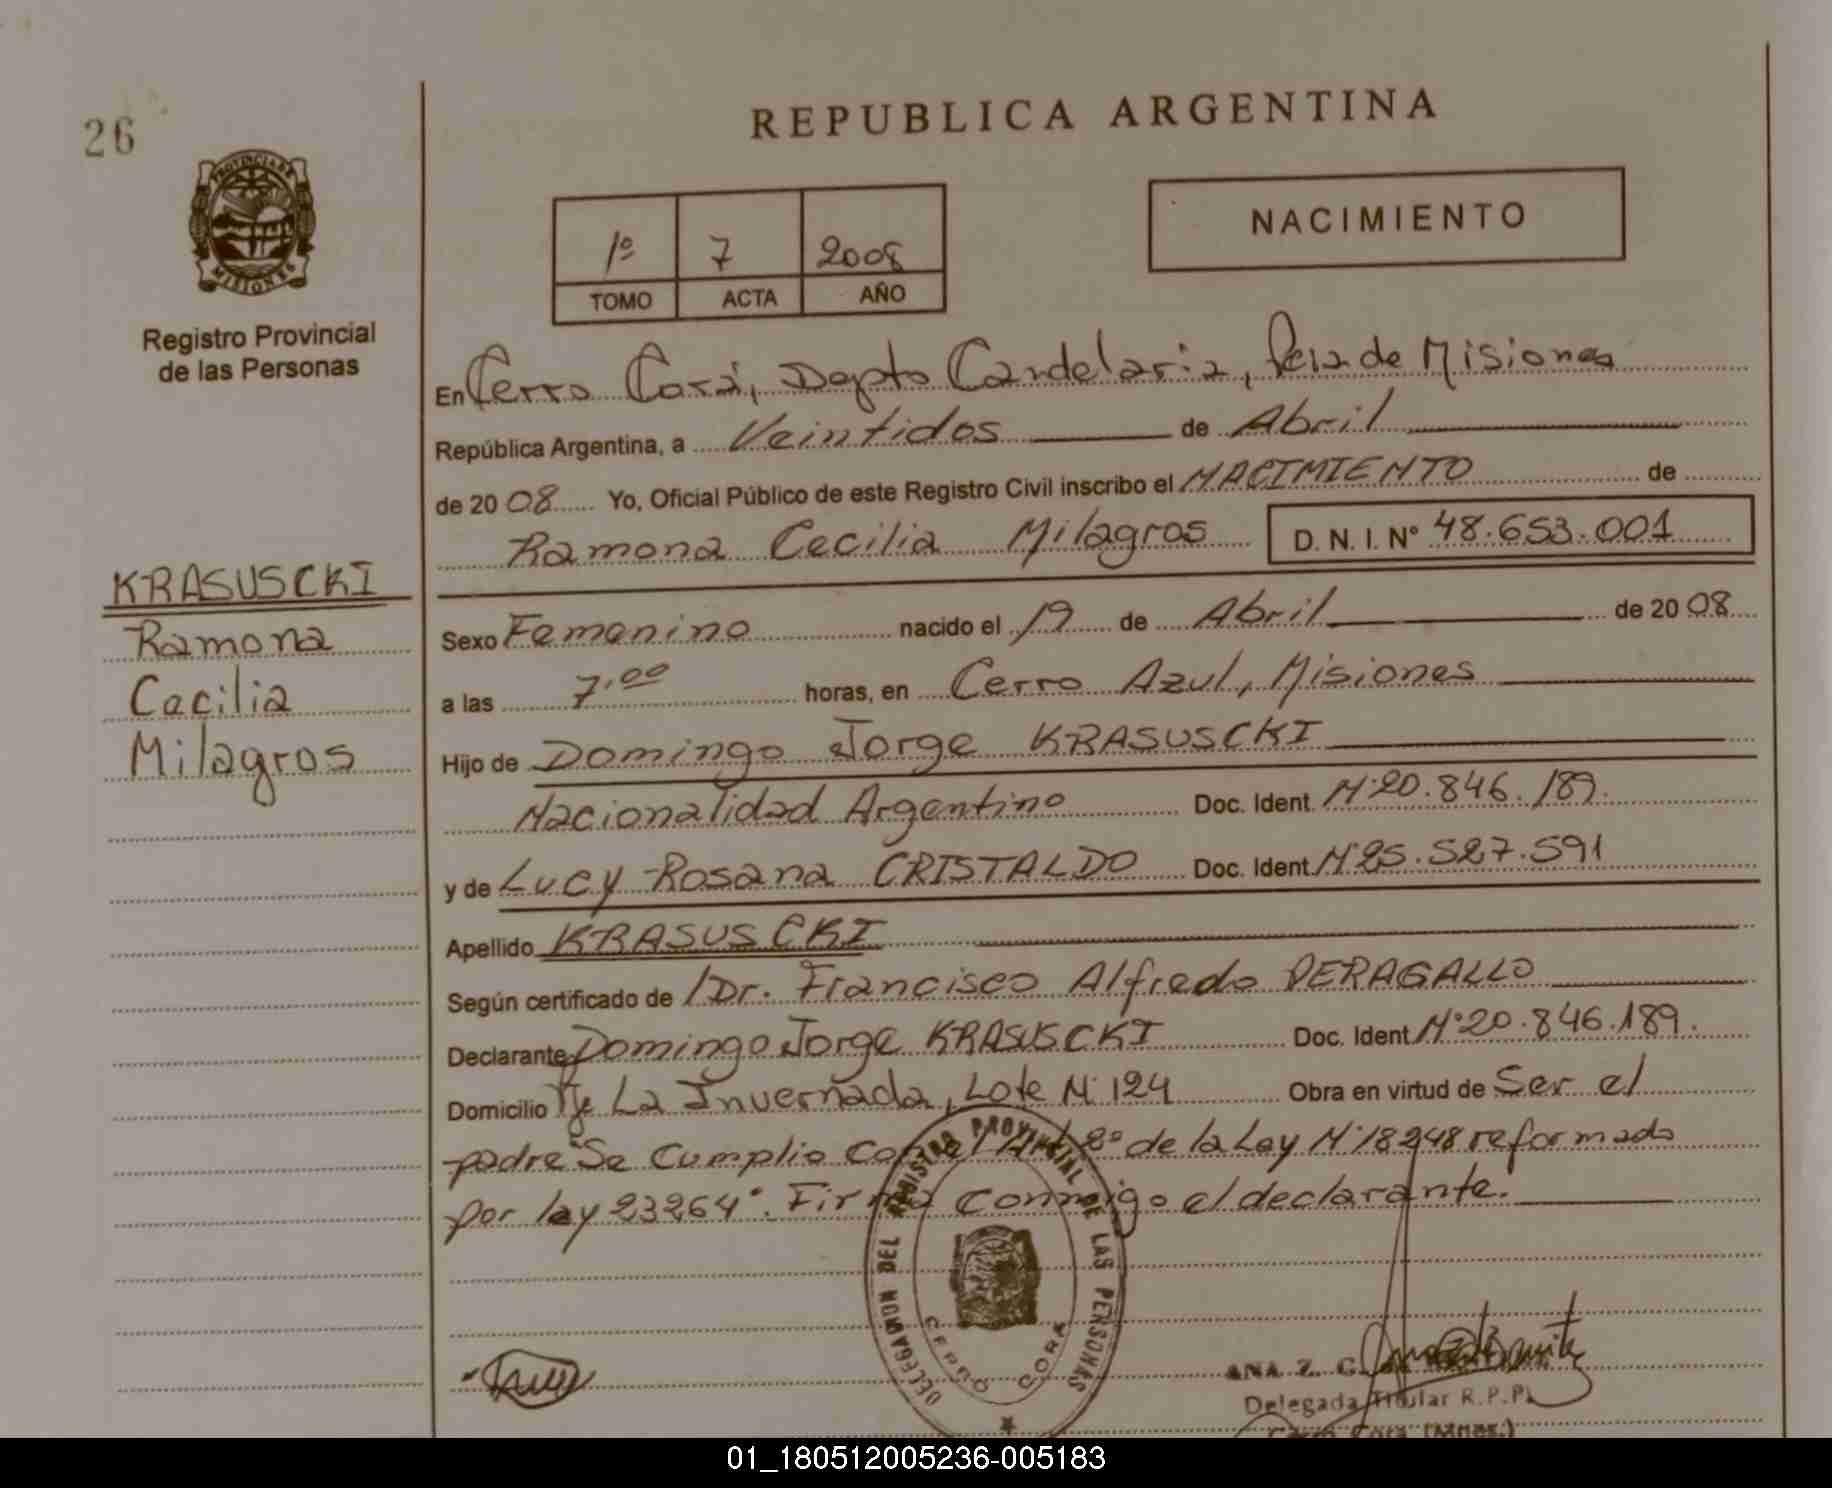 26
REPUBLICA ARGENTINA
PROVINCIA DE
MISIONES
Registro Provincial
de las Personas
1º 7 2008
TOMO ACTA AÑO
NACIMIENTO
En Cerro Corá, Depto Candelaria, Pcia de Misiones
República Argentina, a Veintidos de Abril
de 20 08 Yo, Oficial Público de este Registro Civil inscribo el NACIMIENTO de
Ramona Cecilia Milagros D. N. I. Nº 48.653.001
KRASUSCKI
Ramona
Cecilia
Milagros
Sexo Femenino nacido el 19 de Abril de 20 08
a las 7,00 horas, en Cerro Azul, Misiones
Hijo de Domingo Jorge KRASUSCKI
Nacionalidad Argentino Doc. Ident. Nº 20.846.189.
y de Lucy Rosana CRISTALDO Doc. Ident. Nº 25.527.591
Apellido KRASUSCKI
Según certificado de Dr. Francisco Alfredo PERAGALLO
Declarante Domingo Jorge KRASUSCKI Doc. Ident Nº 20.846.189.
Domicilio La Invernada, Lote Nº 124 Obra en virtud de Ser el
padre "Se Cumplio con el Art 2º de la Ley Nº 18248 reformado
por ley 23264". Firma Conmigo el declarante.
DELEGACION DEL REGISTRO PROVINCIAL DE LAS PERSONAS
CERRO CORA
ANA Z. G.
Delegada Titular R.P.P.
Cerro Cora (Mnes.)
01_180512005236-005183